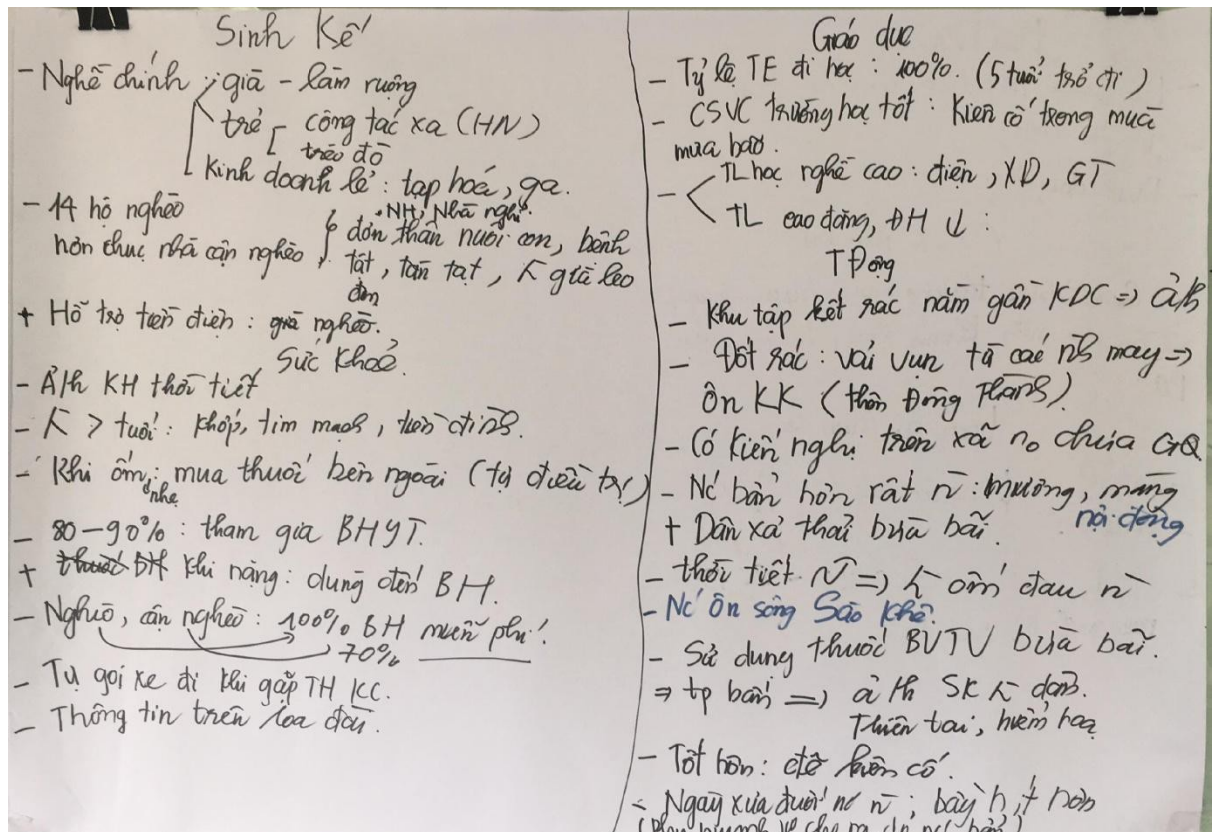 Sinh Kế
- Nghề chính : già - làm ruộng
trẻ [ công tác xa (HN)
trèo đò
Kinh doanh lẻ : tạp hoá, ga.
- 14 hộ nghèo
• NH, Nhà nghỉ.
hơn chục nhà cận nghèo } đơn thân nuôi con, bệnh
tật, tàn tật, già leo
đơn
+ Hỗ trợ tiền điện : già nghèo.
Sức khoẻ.
- Ảh KH thời tiết
- > tuổi : khớp, tim mạch, tiền đình.
- Khi ốm : mua thuốc bên ngoài (tự điều trị)
nhẹ
- 80-90% : tham gia BHYT.
+ thuốc BH khi nặng : dùng đến BH.
- Nghèo, cận nghèo : 100% BH miễn phí.
70%
- Tự gọi xe đi khi gặp TH KC.
- Thông tin trên loa đài.
Giáo dục
- Tỷ lệ TE đi học : 100%. (5 tuổi trở đi)
- CSVC trường học tốt : Kiên cố trong mùa
mưa bão.
- TL học nghề cao : điện, XD, GT
TL cao đẳng, ĐH ↓ :
TĐộng
- Khu tập kết rác nằm gần KDC => ảh
- Đốt rác : vải vụn từ các nh may =>
Ôn KK (thôn Đông Thành).
- Có kiến nghị trên xã no chưa GQ
- Nc' bẩn hơn rất n : mương, máng
nội đồng
+ Dân xả thải bừa bãi.
- thời tiết N => ốm đau n
- Nc' Ôn sông Sào Khê.
- Sử dụng thuốc BVTV bừa bãi.
=> tp bẩn => ảh SK dân.
Thiên tai, hiểm hoạ
- Tốt hơn : đê kiên cố.
- Ngày xưa đuối nc n ; bây h ít hơn